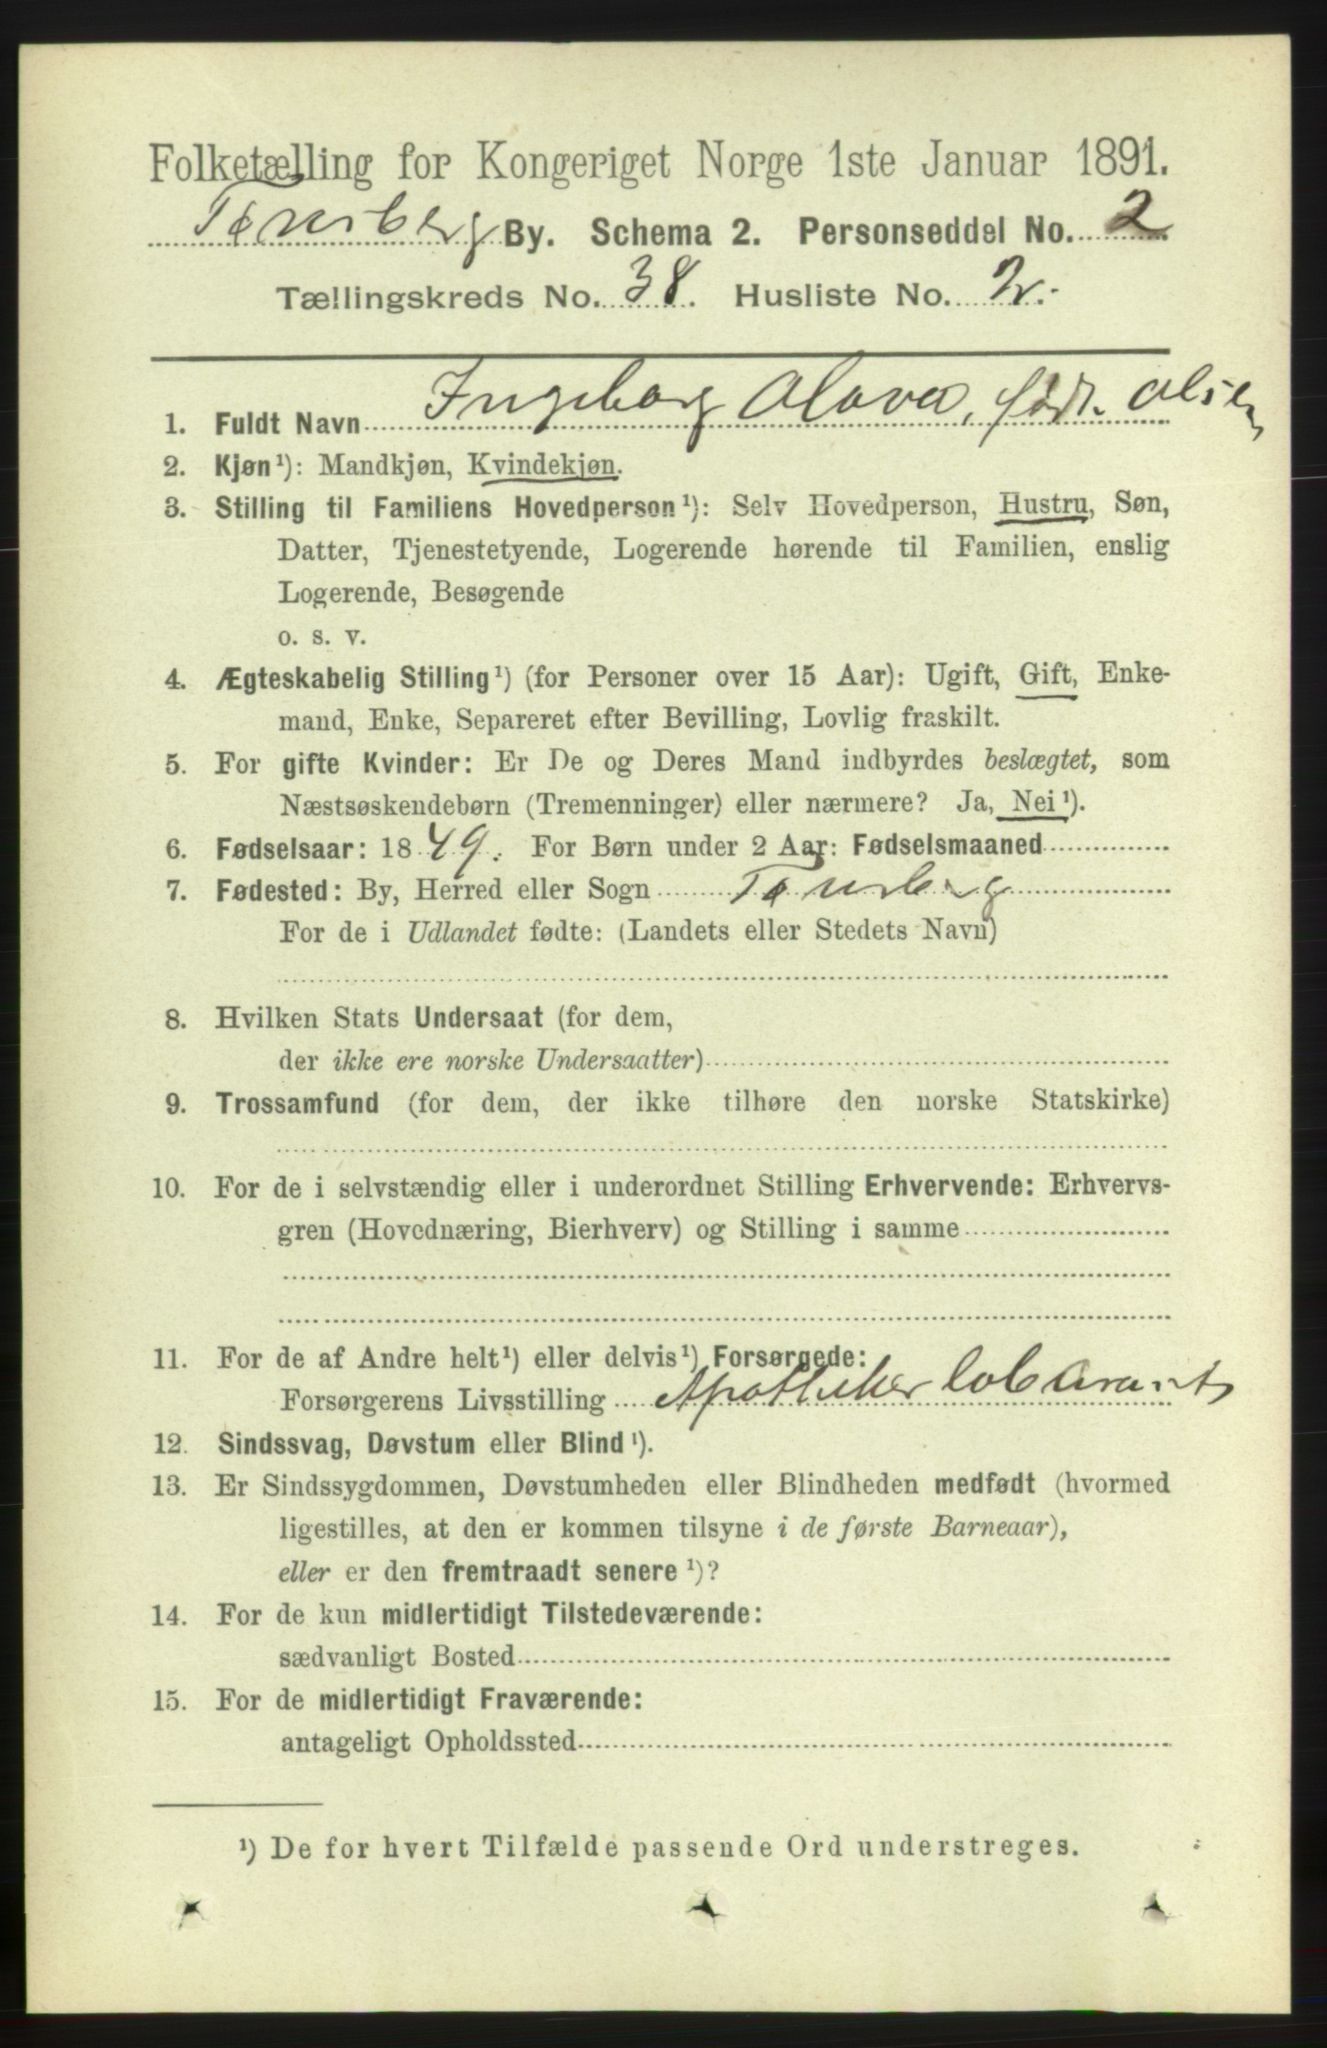 Folketælling for Kongeriget Norge 1ste Januar 1891.
Tønsberg By. Schema 2. Personseddel No. 2
Tællingskreds No. 38. Husliste No. 2.
1. Fuldt Navn Ingeborg Olava, født Olsen
2. Kjøn¹): Mandkjøn, Kvindekjøn.
3. Stilling til Familiens Hovedperson¹): Selv Hovedperson, Hustru, Søn,
Datter, Tjenestetyende, Logerende hørende til Familien, enslig
Logerende, Besøgende
o. s. v.
4. Ægteskabelig Stilling¹) (for Personer over 15 Aar): Ugift, Gift, Enke-
mand, Enke, Separeret efter Bevilling, Lovlig fraskilt.
5. For gifte Kvinder: Er De og Deres Mand indbyrdes beslægtet, som
Næstsøskendebørn (Tremenninger) eller nærmere? Ja, Nei¹).
6. Fødselsaar: 1849. For Børn under 2 Aar: Fødselsmaaned
7. Fødested: By, Herred eller Sogn Tønsberg
For de i Udlandet fødte: (Landets eller Stedets Navn)
8. Hvilken Stats Undersaat (for dem,
der ikke ere norske Undersaatter)
9. Trossamfund (for dem, der ikke tilhøre den norske Statskirke)
10. For de i selvstændig eller i underordnet Stilling Erhvervende: Erhvervs-
gren (Hovednæring, Bierhverv) og Stilling i samme
11. For de af Andre helt¹) eller delvis¹) Forsørgede:
Forsørgerens Livsstilling Apotheker laborant
12. Sindssvag, Døvstum eller Blind¹).
13. Er Sindssygdommen, Døvstumheden eller Blindheden medfødt (hvormed
ligestilles, at den er kommen tilsyne i de første Barneaar),
eller er den fremtraadt senere¹)?
14. For de kun midlertidigt Tilstedeværende:
sædvanligt Bosted
15. For de midlertidigt Fraværende:
antageligt Opholdssted
¹) De for hvert Tilfælde passende Ord understreges.